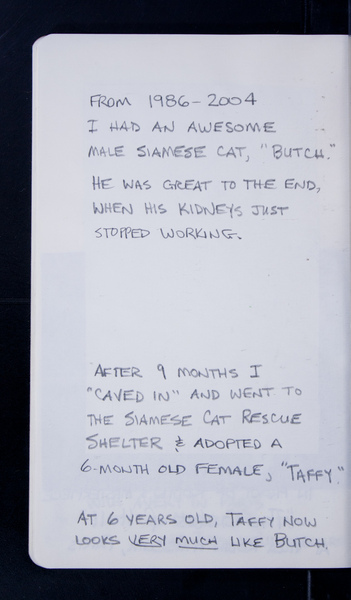 FROM 1986-2004
I HAD AN AWESOME
MALE SIAMESE CAT, "BUTCH."
HE WAS GREAT TO THE END,
WHEN HIS KIDNEYS JUST
STOPPED WORKING.
AFTER 9 MONTHS I
"CAVED IN" AND WENT TO
THE SIAMESE CAT RESCUE
SHELTER & ADOPTED A
6-MONTH OLD FEMALE, "TAFFY."
AT 6 YEARS OLD, TAFFY NOW
LOOKS VERY MUCH LIKE BUTCH.